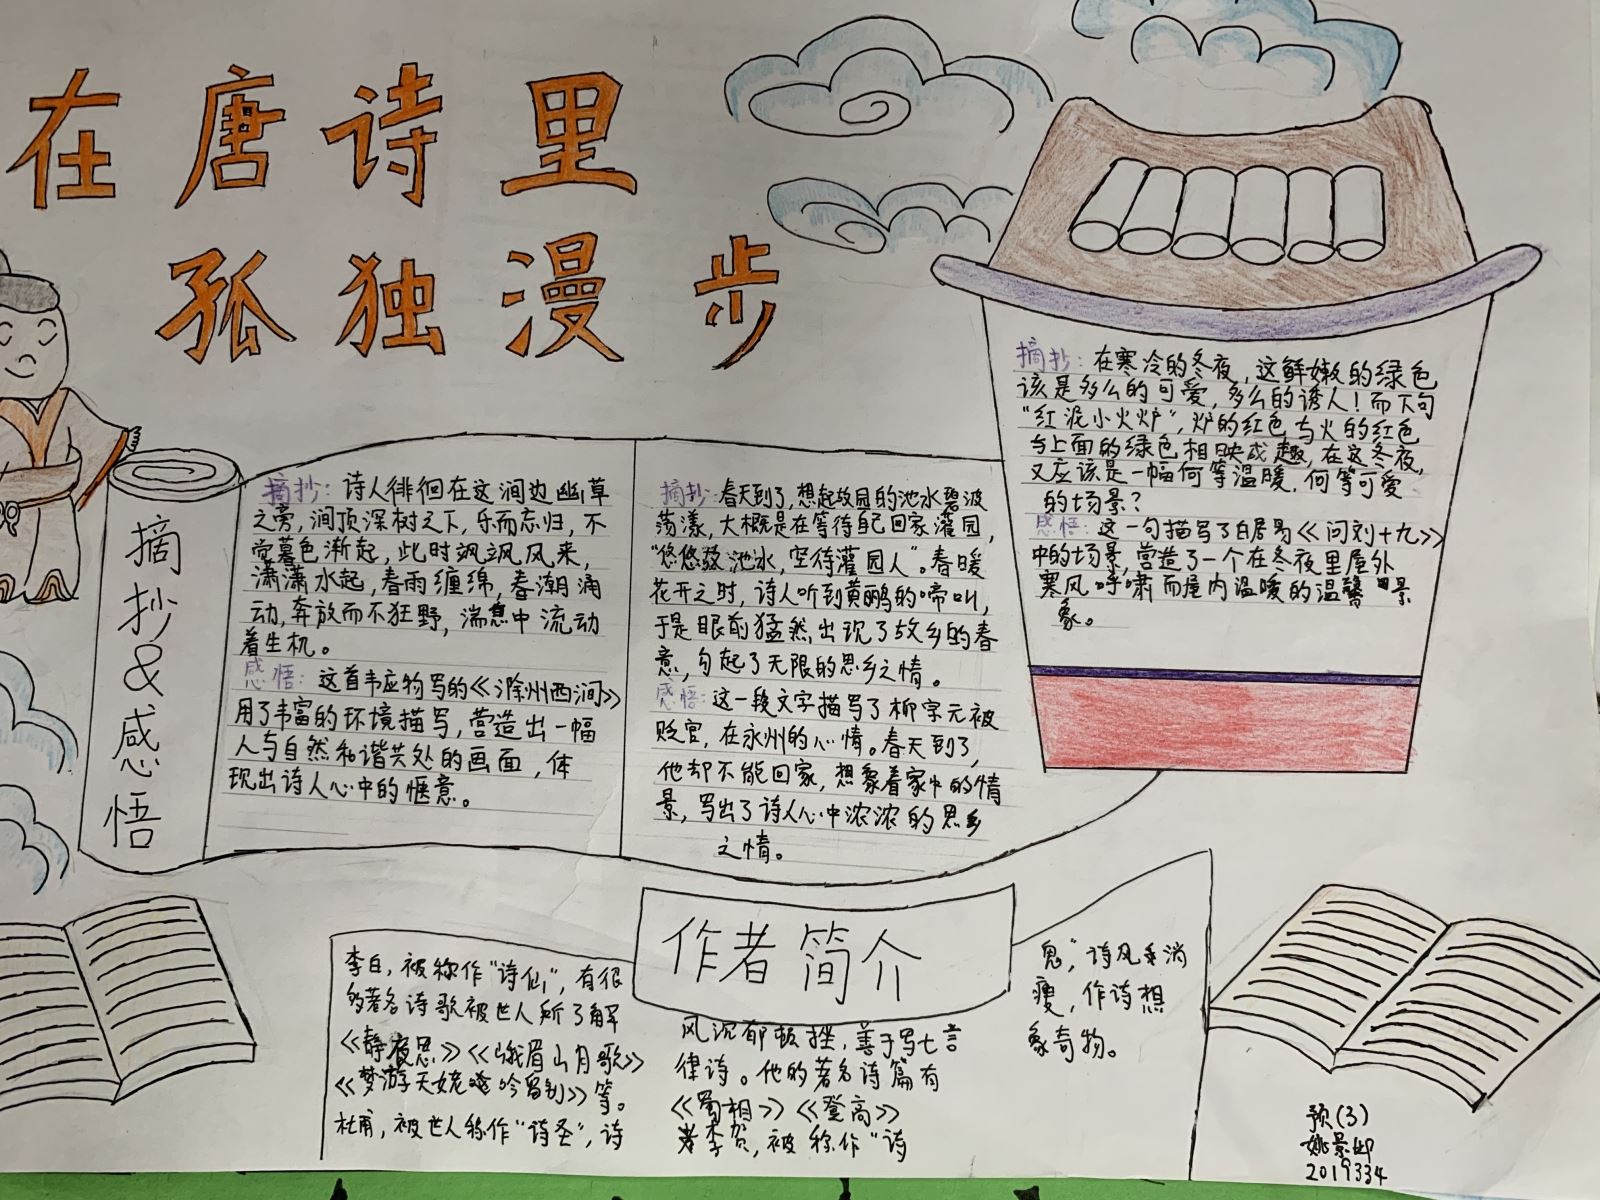 在唐诗里
孤独漫步
摘抄&感悟
摘抄：诗人徘徊在这涧边幽草
之旁，涧顶深树之下，乐而忘归，不
觉暮色渐起，此时飒飒风来，
潇潇水起，春雨缠绵，春潮涌
动，奔放而不狂野，湍急中流动
着生机。
感悟：这首韦应物写的《滁州西涧》
用了丰富的环境描写，营造出一幅
人与自然和谐共处的画面，体
现出诗人心中的惬意。
摘抄：春天到了，想起故园的池水碧波
荡漾，大概是在等待自己回家灌园，
“悠悠故池水，空待灌园人”。春暖
花开之时，诗人听到黄鹂的啼叫，
于是眼前猛然出现了故乡的春
意，勾起了无限的思乡之情。
感悟：这一段文字描写了柳宗元被
贬官，在永州的心情。春天到了，
他却不能回家，想象着家中的情
景，写出了诗人心中浓浓的思乡
之情。
摘抄：在寒冷的冬夜，这鲜嫩的绿色
该是多么的可爱，多么的诱人！而下句
“红泥小火炉”，炉的红色与火的红色
与上面的绿色相映成趣，在这冬夜，
又应该是一幅何等温暖，何等可爱
的场景？
感悟：这一句描写了白居易《问刘十九》
中的场景，营造了一个在冬夜里屋外
寒风呼啸而屋内温暖的温馨景
象。
作者简介
李白，被称作“诗仙”，有很
多著名诗歌被世人所了解
《静夜思》《峨眉山月歌》
《梦游天姥吟留别》等。
杜甫，被世人称作“诗圣”，诗
风沉郁顿挫，善于写七言
律诗。他的著名诗篇有
《蜀相》《登高》
李贺，被称作“诗
鬼”，诗风消
瘦，作诗想
象奇物。
预(3)
姚景
2019334